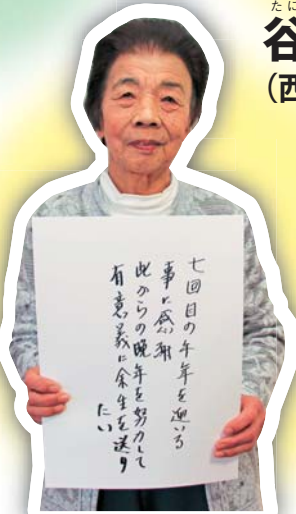 たに
谷
(西
七回目の午年を迎いる
事に感謝
此からの晩年を努力して
有意義に余生を送り
たい